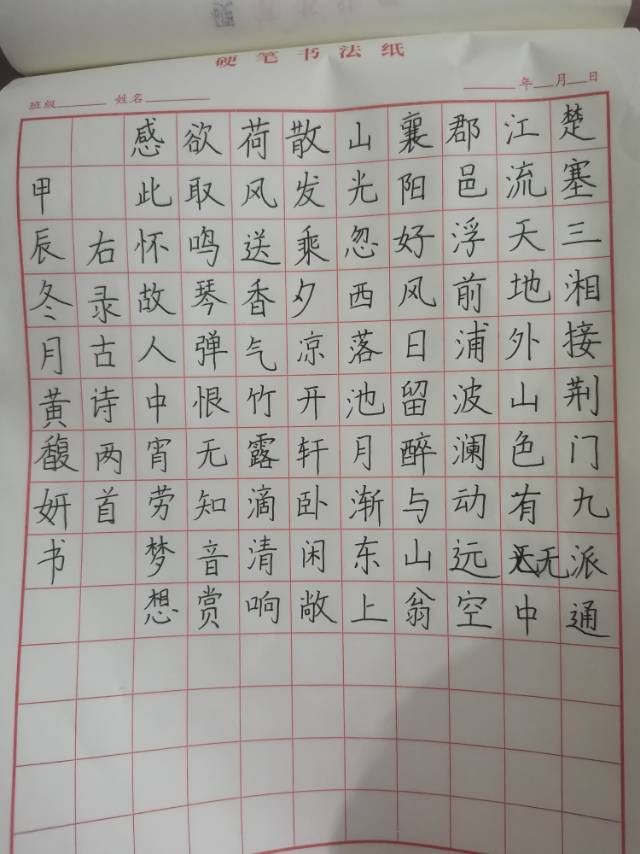 硬笔书法纸
班级 姓名 年 月 日
楚塞三湘接荆门九派通
江流天地外山色有无中
郡邑浮前浦波澜动远空
襄阳好风日留醉与山翁
山光忽西落池月渐东上
散发乘夕凉开轩卧闲敞
荷风送香气竹露滴清响
欲取鸣琴弹恨无知音赏
感此怀故人中宵劳梦想
右录古诗两首
甲辰冬月黄馥妍书